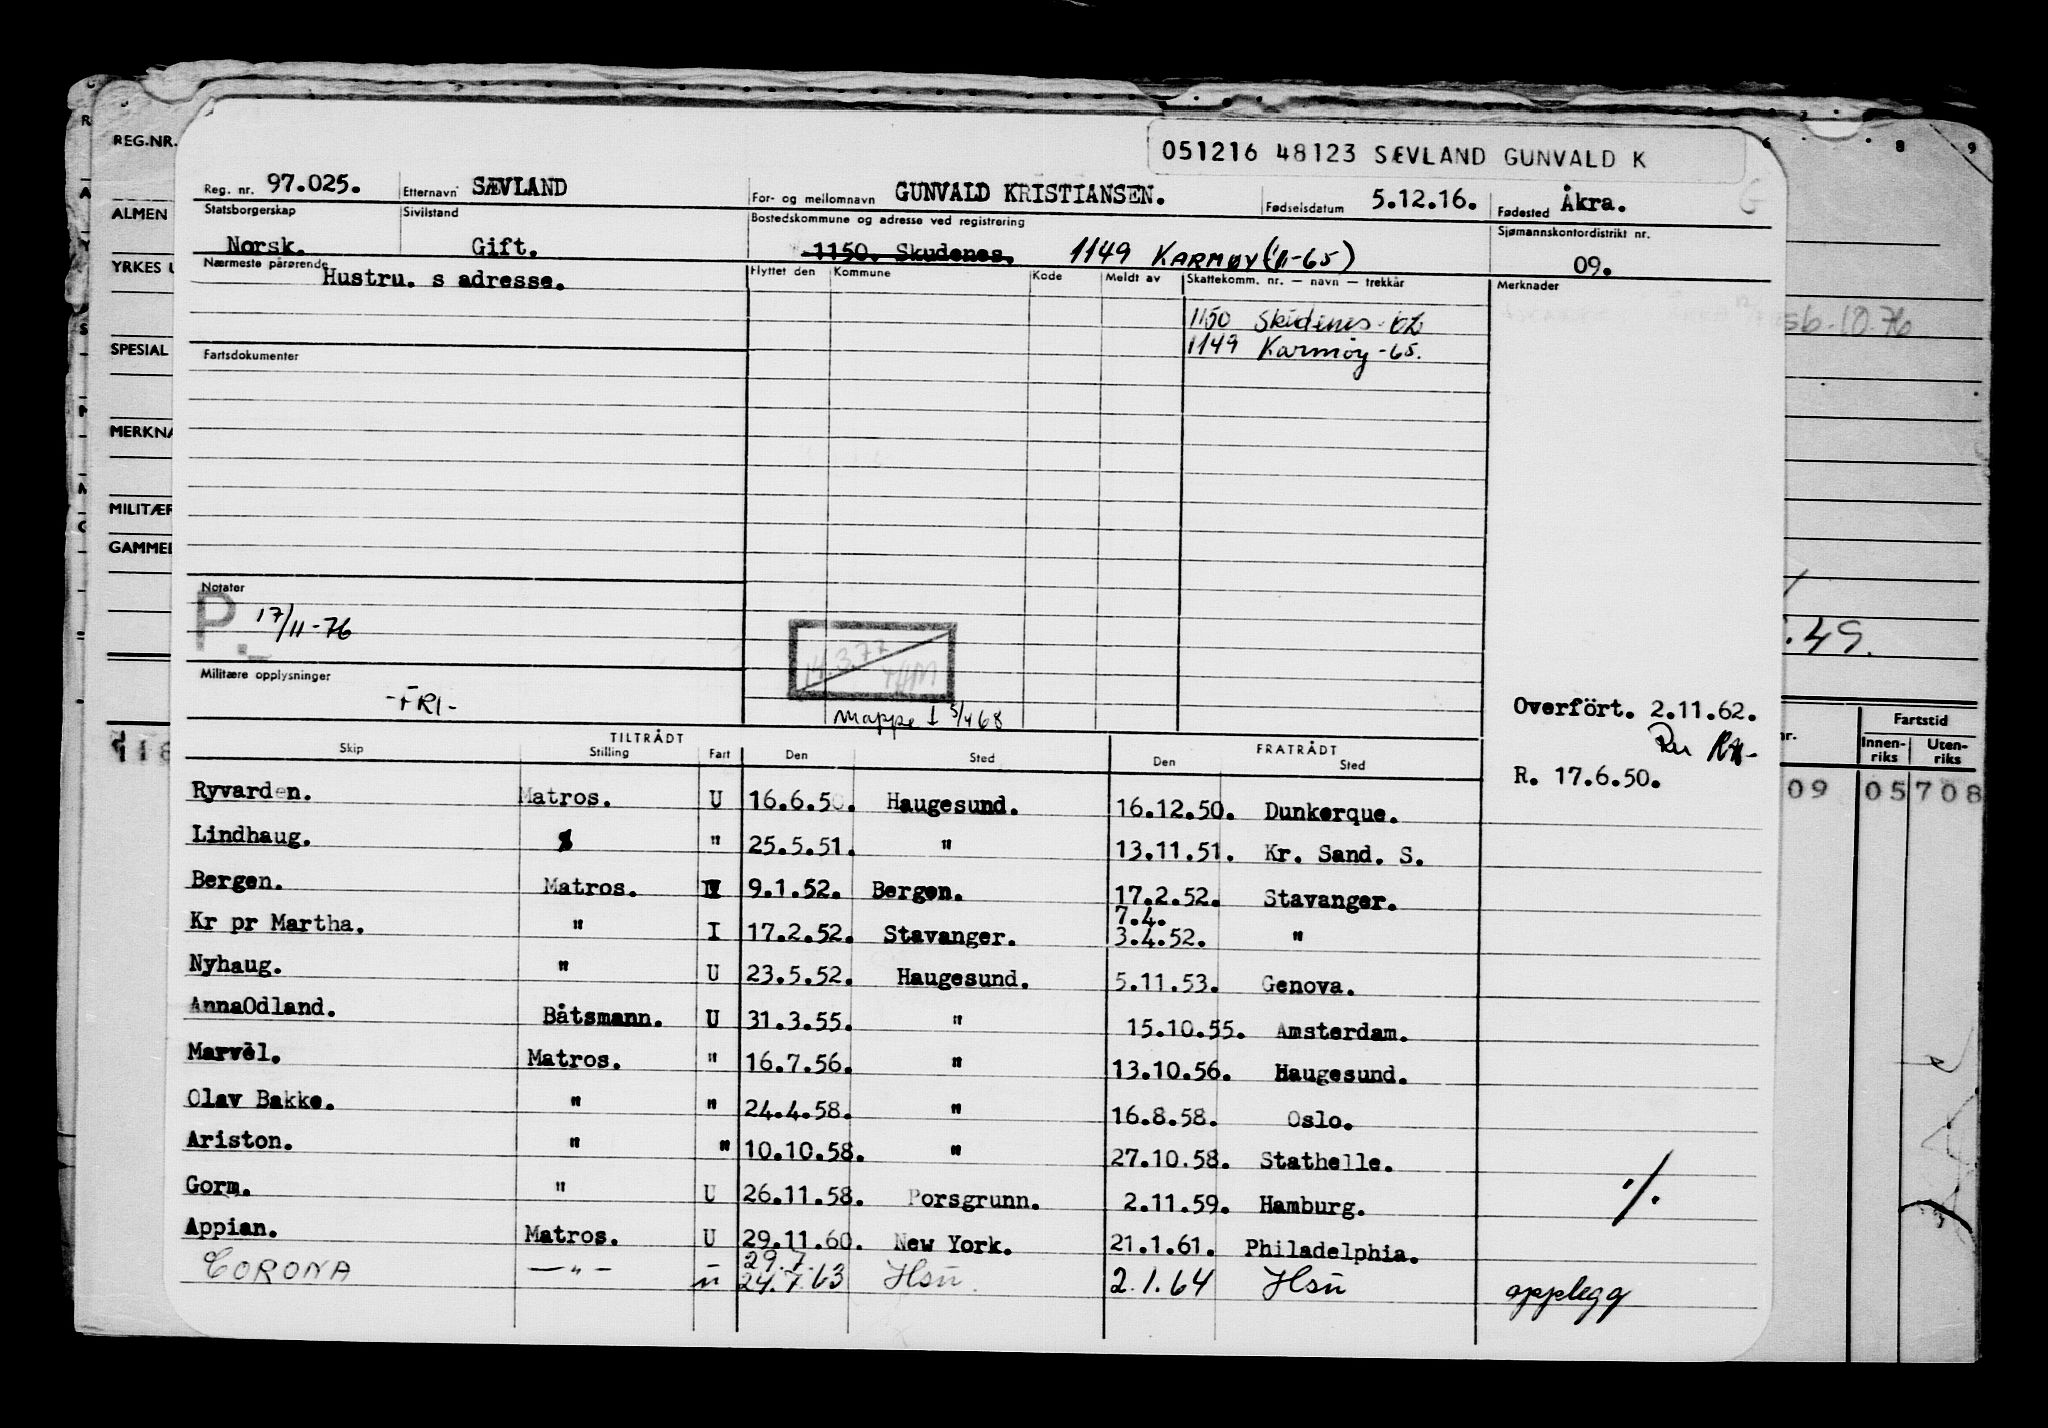 051216 48123 SÆVLAND GUNVALD K
REG.NR.
Reg. nr. 97.025. Etternavn SÆVLAND For- og mellomnavn GUNVALD KRISTIANSEN. Fødselsdatum 5.12.16. Fødested Åkra.
Statsborgerskap Sivilstand Bostedskommune og adresse ved registrering Sjømannskontordistrikt nr.
ALMEN
Norsk. Gift. 1150. Skudenes. 1149 KARMØY (11-65) 09.
YRKES
Nærmeste pårørende Hustru. s adresse. Flyttet den Kommune Kode Meldt av Skattekomm. nr. — navn — trekkår Merknader
1150 Skudenes - 62
56.10.76
SPESIAL
1149 Karmøy - 65.
Fartsdokumenter
MERKNA
MILITÆR
GAMMEL
Notater
P. 17/11-76
14.3.77
.49.
Militære opplysninger
-FRI-
Mappe I 5/4 68
Overført. 2.11.62.
R. 17.6.50.
TILTRÅDT FRATRÅDT
Skip Stilling Fart Den Sted Den Sted
nr. Fartstid
Innen-riks Uten-riks
118
09 05 708
Ryvarden. Matros. U 16.6.50. Haugesund. 16.12.50. Dunkerque.
Lindhaug. " 25.5.51. " 13.11.51. Kr. Sand. S.
Bergen. Matros. 9.1.52. Bergen. 17.2.52. Stavanger.
7.4.
Kr pr Martha. " I 17.2.52. Stavanger. 3.4.52. "
Nyhaug. " U 23.5.52. Haugesund. 5.11.53. Genova.
AnnaOdland. Båtsmann. U 31.3.55. " 15.10.55. Amsterdam.
Marvèl. Matros. " 16.7.56. " 13.10.56. Haugesund.
Olav Bakke. " " 24.4.58. " 16.8.58. Oslo.
Ariston. " " 10.10.58. " 27.10.58. Stathelle.
Gorm. " U 26.11.58. Porsgrunn. 2.11.59. Hamburg. ./.
Appian. Matros. U 29.11.60. New York. 21.1.61. Philadelphia.
29.7.
CORONA — " — " 24.7.63 Hsu 2.1.64 Hsu opplegg